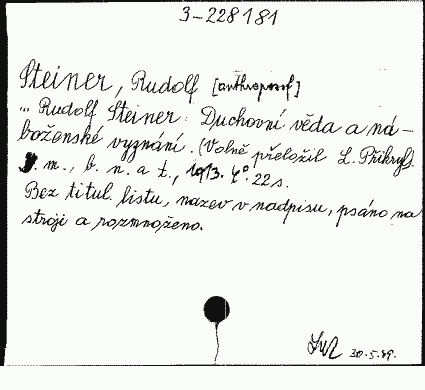 3-228181
Steiner, Rudolf [anthroposof]
... Rudolf Steiner: Duchovní věda a ná-
boženské vyznání. (Volně přeložil L. Přikryl).
B. m., b. n. a t., 1913. 4°. 22 s.
Bez titul. listu, název v nadpisu, psáno na
stroji a rozmnoženo.
30.5.49.